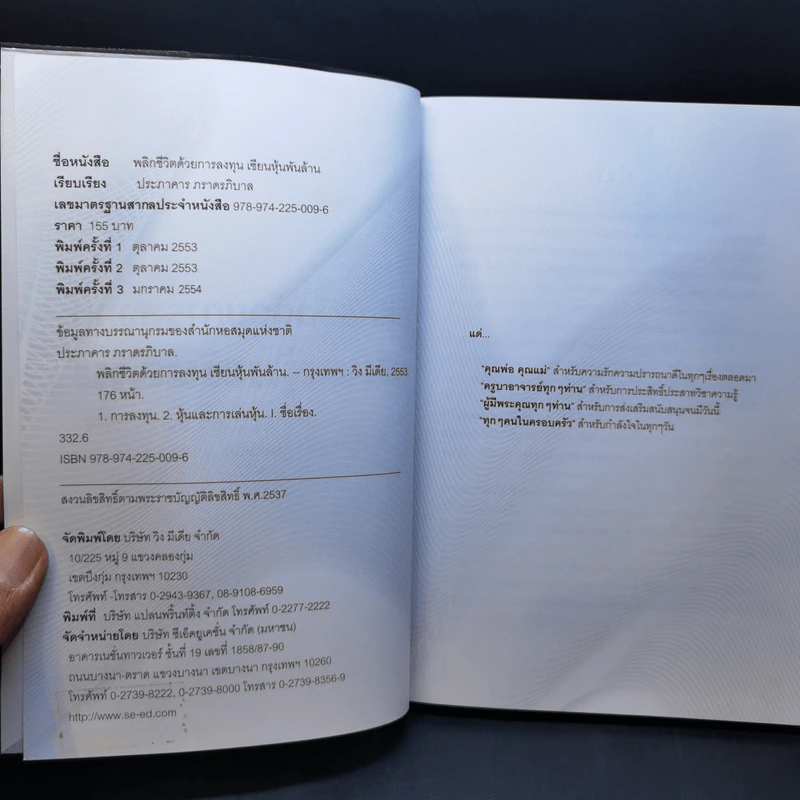 ชื่อหนังสือ พลิกชีวิตด้วยการลงทุน เซียนหุ้นพันล้าน
เรียบเรียง ประภาคาร ภราดรภิบาล
เลขมาตรฐานสากลประจำหนังสือ 978-974-225-009-6
ราคา 155 บาท
พิมพ์ครั้งที่ 1 ตุลาคม 2553
พิมพ์ครั้งที่ 2 ตุลาคม 2553
พิมพ์ครั้งที่ 3 มกราคม 2554
ข้อมูลทางบรรณานุกรมของสำนักหอสมุดแห่งชาติ
ประภาคาร ภราดรภิบาล.
พลิกชีวิตด้วยการลงทุน เซียนหุ้นพันล้าน. -- กรุงเทพฯ : วิง มีเดีย, 2553.
176 หน้า.
1. การลงทุน. 2. หุ้นและการเล่นหุ้น. I. ชื่อเรื่อง.
332.6
ISBN 978-974-225-009-6
สงวนลิขสิทธิ์ตามพระราชบัญญัติลิขสิทธิ์ พ.ศ.2537
จัดพิมพ์โดย บริษัท วิง มีเดีย จำกัด
10/225 หมู่ 9 แขวงคลองกุ่ม
เขตบึงกุ่ม กรุงเทพฯ 10230
โทรศัพท์ -โทรสาร 0-2943-9367, 08-9108-6959
พิมพ์ที่ บริษัท แปลนพริ้นท์ติ้ง จำกัด โทรศัพท์ 0-2277-2222
จัดจำหน่ายโดย บริษัท ซีเอ็ดยูเคชั่น จำกัด (มหาชน)
อาคารเนชั่นทาวเวอร์ ชั้นที่ 19 เลขที่ 1858/87-90
ถนนบางนา-ตราด แขวงบางนา เขตบางนา กรุงเทพฯ 10260
โทรศัพท์ 0-2739-8222, 0-2739-8000 โทรสาร 0-2739-8356-9
http://www.se-ed.com
6
แด่...
"คุณพ่อ คุณแม่" สำหรับความรักความปรารถนาดีในทุกๆเรื่องตลอดมา
"ครูบาอาจารย์ทุกๆท่าน" สำหรับการประสิทธิ์ประสาทวิชาความรู้
"ผู้มีพระคุณทุกๆท่าน" สำหรับการส่งเสริมสนับสนุนจนมีวันนี้
"ทุกๆคนในครอบครัว" สำหรับกำลังใจในทุกๆวัน